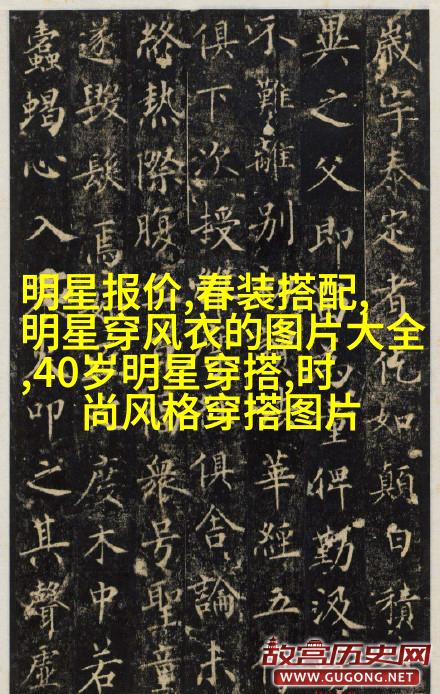 歲宇泰定者
如顛白積
異之父即
俾勤汲
不難離別
華經五
俱下次授
俱舍論未
終熱際腹
衆号聖童
遂毀髮焉
度木中若
蠹蝎心入
卬之其聲虛
明星报价,春装搭配,
明星穿风衣的图片大全
,40岁明星穿搭,时
尚风格穿搭图片
故宫历史网
WWW.GUGONG.NET